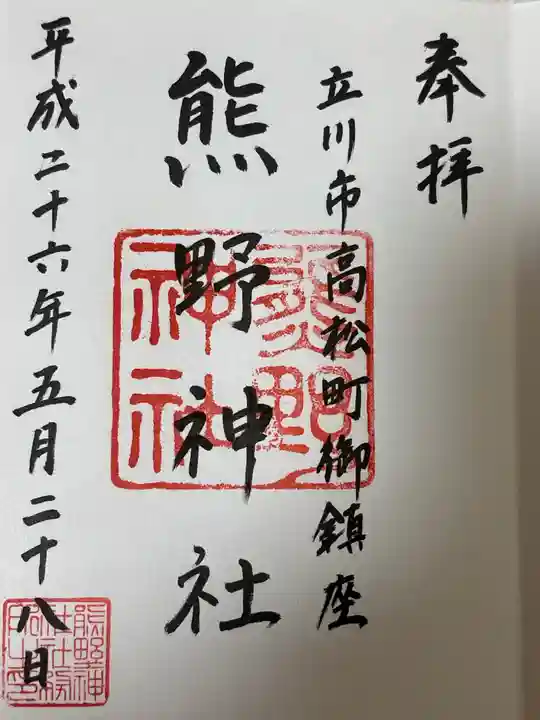 奉拝
立川市高松町御鎮座
熊野神社
熊野神社
平成二十六年五月二十八日